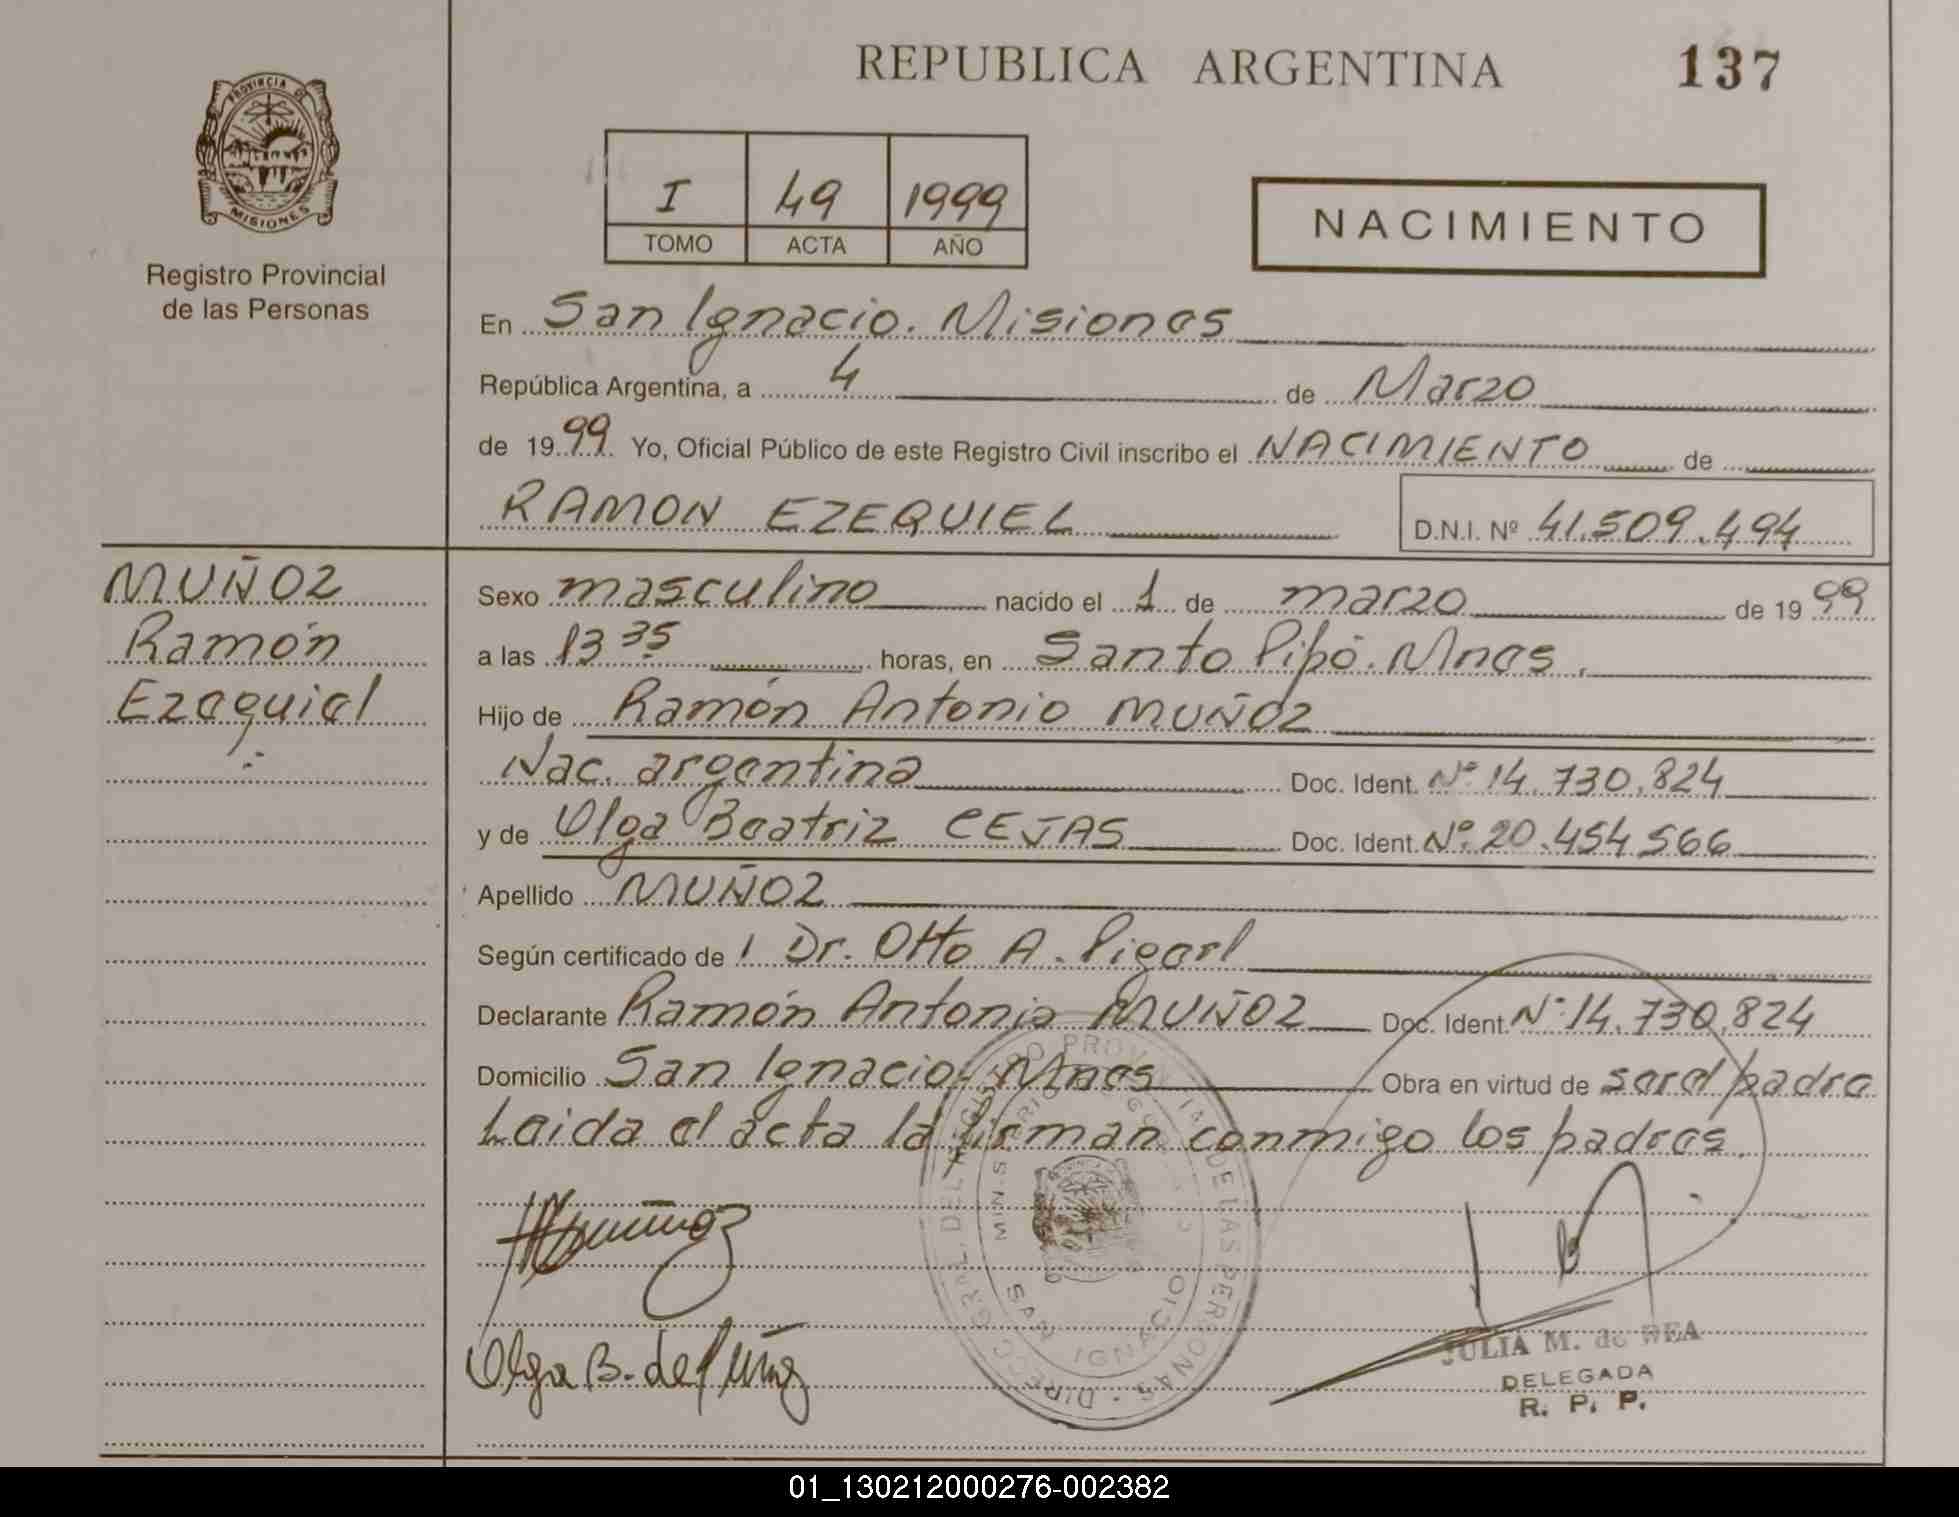 REPUBLICA ARGENTINA 137
PROVINCIA DE
MISIONES
Registro Provincial
de las Personas
I 49 1999
TOMO ACTA AÑO
NACIMIENTO
En San Ignacio. Misiones
República Argentina, a 4 de Marzo
de 1999 Yo, Oficial Público de este Registro Civil inscribo el NACIMIENTO de
RAMON EZEQUIEL D.N.I. Nº 41.509.494
MUÑOZ
Ramón
Ezequiel
Sexo masculino nacido el 1 de marzo de 1999
a las 13 35 horas, en Santo Pipó. Mnes.
Hijo de Ramón Antonio MUÑOZ
Nac. argentina Doc. Ident. Nº 14.730.824
y de Olga Beatriz CEJAS Doc. Ident. Nº 20.454.566
Apellido MUÑOZ
Según certificado de Dr. Otto A.
Declarante Ramón Antonio MUÑOZ Doc. Ident. Nº 14.730.824
Domicilio San Ignacio. Mnes Obra en virtud de ser el padre
Leida el acta la firman conmigo los padres.
Muñoz
Olga B. de Muñoz
DIRECC. GRAL. DEL REGISTRO PROVINCIAL DE LAS PERSONAS
SAN IGNACIO
JULIA M. de WEA
DELEGADA
R. P. P.
01_130212000276-002382